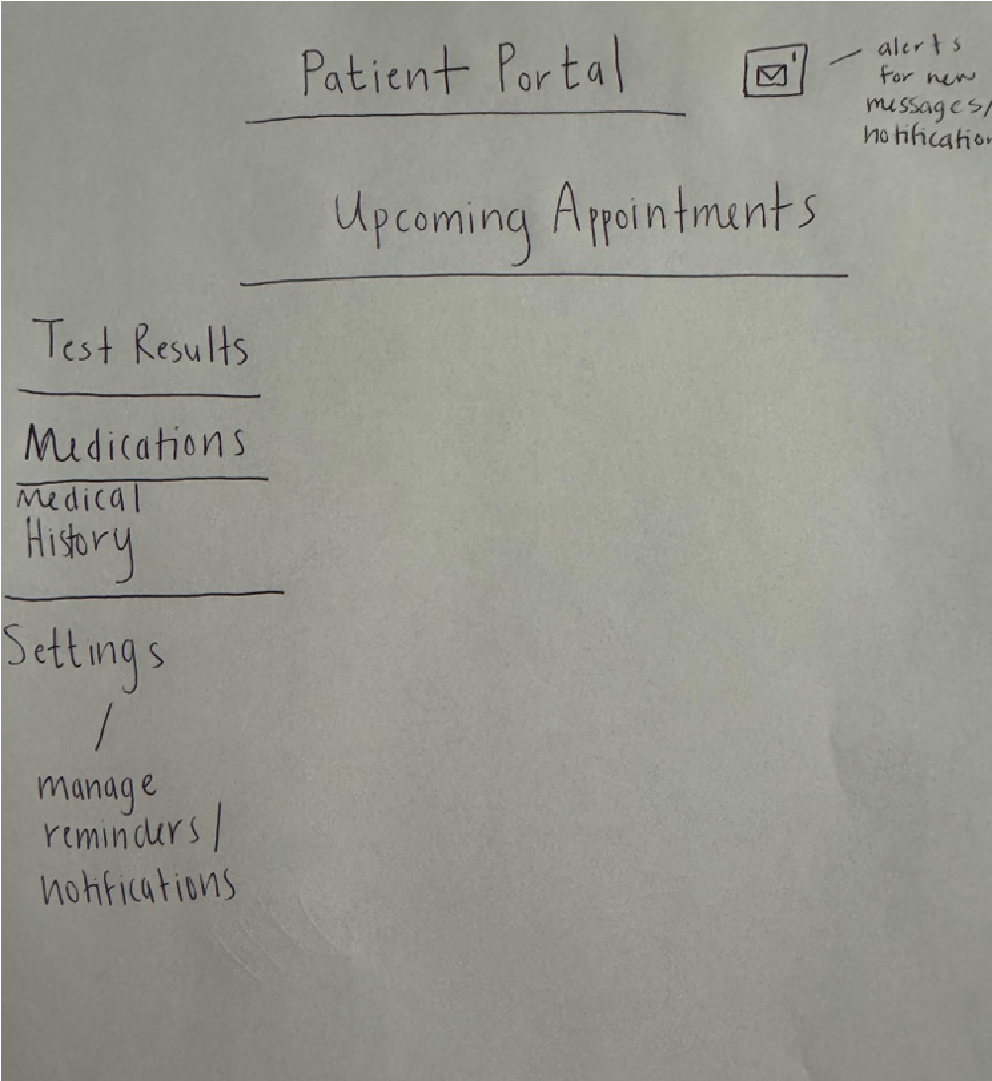 Patient Portal
alerts
for new
messages/
notification
Upcoming Appointments
Test Results
Medications
Medical
History
Settings
/
manage
reminders/
notifications